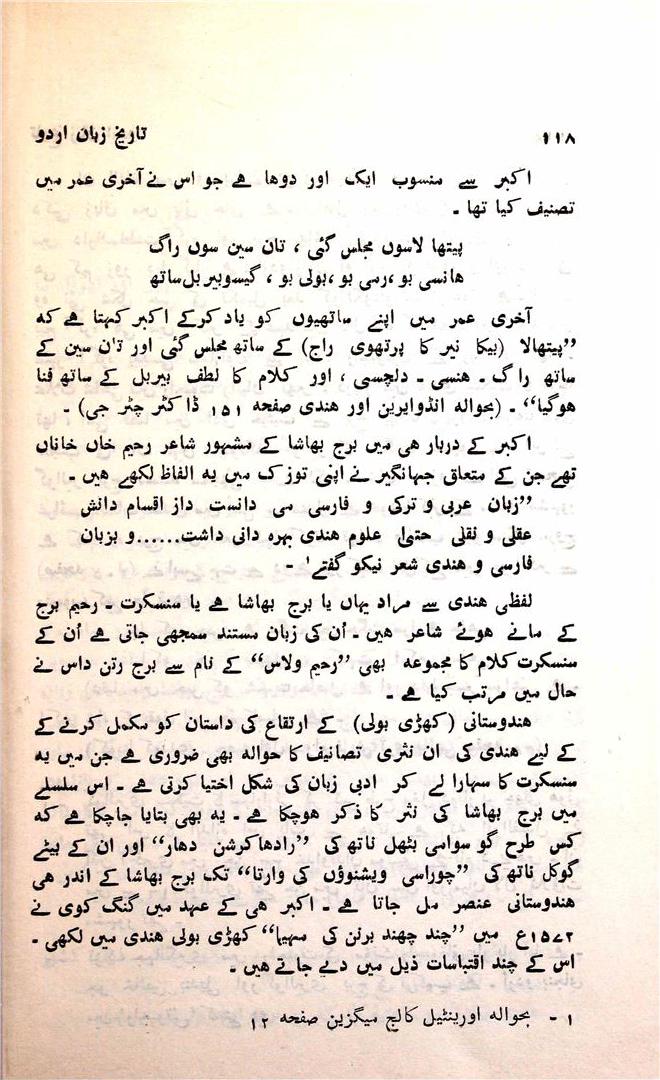 ۱۱۸ تاریخ زبان اردو
اکبر سے منسوب ایک اور دوھا ہے جو اس نے آخری عمر میں
تصنیف کیا تھا ۔
پیتھا لاسوں مجلس گئی ، تان سین سوں راگ
ھانسی بو ،رسی بو ،بولی بو ، گیسوبیر بل ساتھ
آخری عمر میں اپنے ساتھیوں کو یاد کرکے اکبر کہتا ہے کہ
”پیتھالا (بیکا نیر کا پرتھوی راج) کے ساتھ مجلس گئی اور تان سین کے
ساتھ راگ ۔ ھنسی ۔ دلچسی ، اور کلام کا لطف بیربل کے ساتھ فنا
ھوگیا“ ۔ (بحوالہ انڈوایرین اور ھندی صفحہ ۱۵۱ ڈاکٹر چٹر جی) ۔
اکبر کے دربار ھی میں برج بھاشا کے مشہور شاعر رحیم خاں خاناں
تھے جن کے متعلق جہانگیر نے اپنی توزک میں یہ الفاظ لکھے ھیں ۔
”زبان عربی و ترکی و فارسی می دانست داز اقسام دانش
عقلی و نقلی حتیٰ علوم ھندی بہرہ دانی داشت......و بزبان
فارسی و ھندی شعر نیکو گفتے ۱ ۔
لفظی ھندی سے مراد یہاں یا برج بھاشا ہے یا سنسکرت ۔ رحیم برج
کے مانے ھوئے شاعر ھیں ۔ اُن کی زبان مستند سمجھی جاتی ہے اُن کے
سنسکرت کلام کا مجموعہ بھی ”رحیم ولاس“ کے نام سے برج رتن داس نے
حال میں مرتب کیا ہے ۔
ھندوستانی (کھڑی بولی) کے ارتقاع کی داستان کو مکمل کرنے کے
کے لیے ھندی کی ان نثری تصانیف کا حوالہ بھی ضروری ہے جن میں یہ
سنسکرت کا سہارا لے کر ادبی زبان کی شکل اختیا کرتی ہے ۔ اس سلسلے
میں برج بھاشا کی نثر کا ذکر ھوچکا ہے ۔ یہ بھی بتایا جاچکا ہے کہ
کس طرح گو سوامی بٹھل ناتھ کی ”رادھاکرشن دھار“ اور ان کے بیٹے
گوکل ناتھ کی ”چوراسی ویشنوؤں کی وارتا“ تک برج بھاشا کے اندر ھی
ھندوستانی عنصر مل جاتا ہے ۔ اکبر ھی کے عہد میں گنگ کوی نے
۱۵۷۲ع میں ”چند چھند برنن کی مہیا“ کھڑی بولی ھندی میں لکھی ۔
اس کے چند اقتباسات ذیل میں دیے جاتے ھیں ۔
۱ ۔ بحوالہ اورینٹیل کالج میگزین صفحہ ۱۲